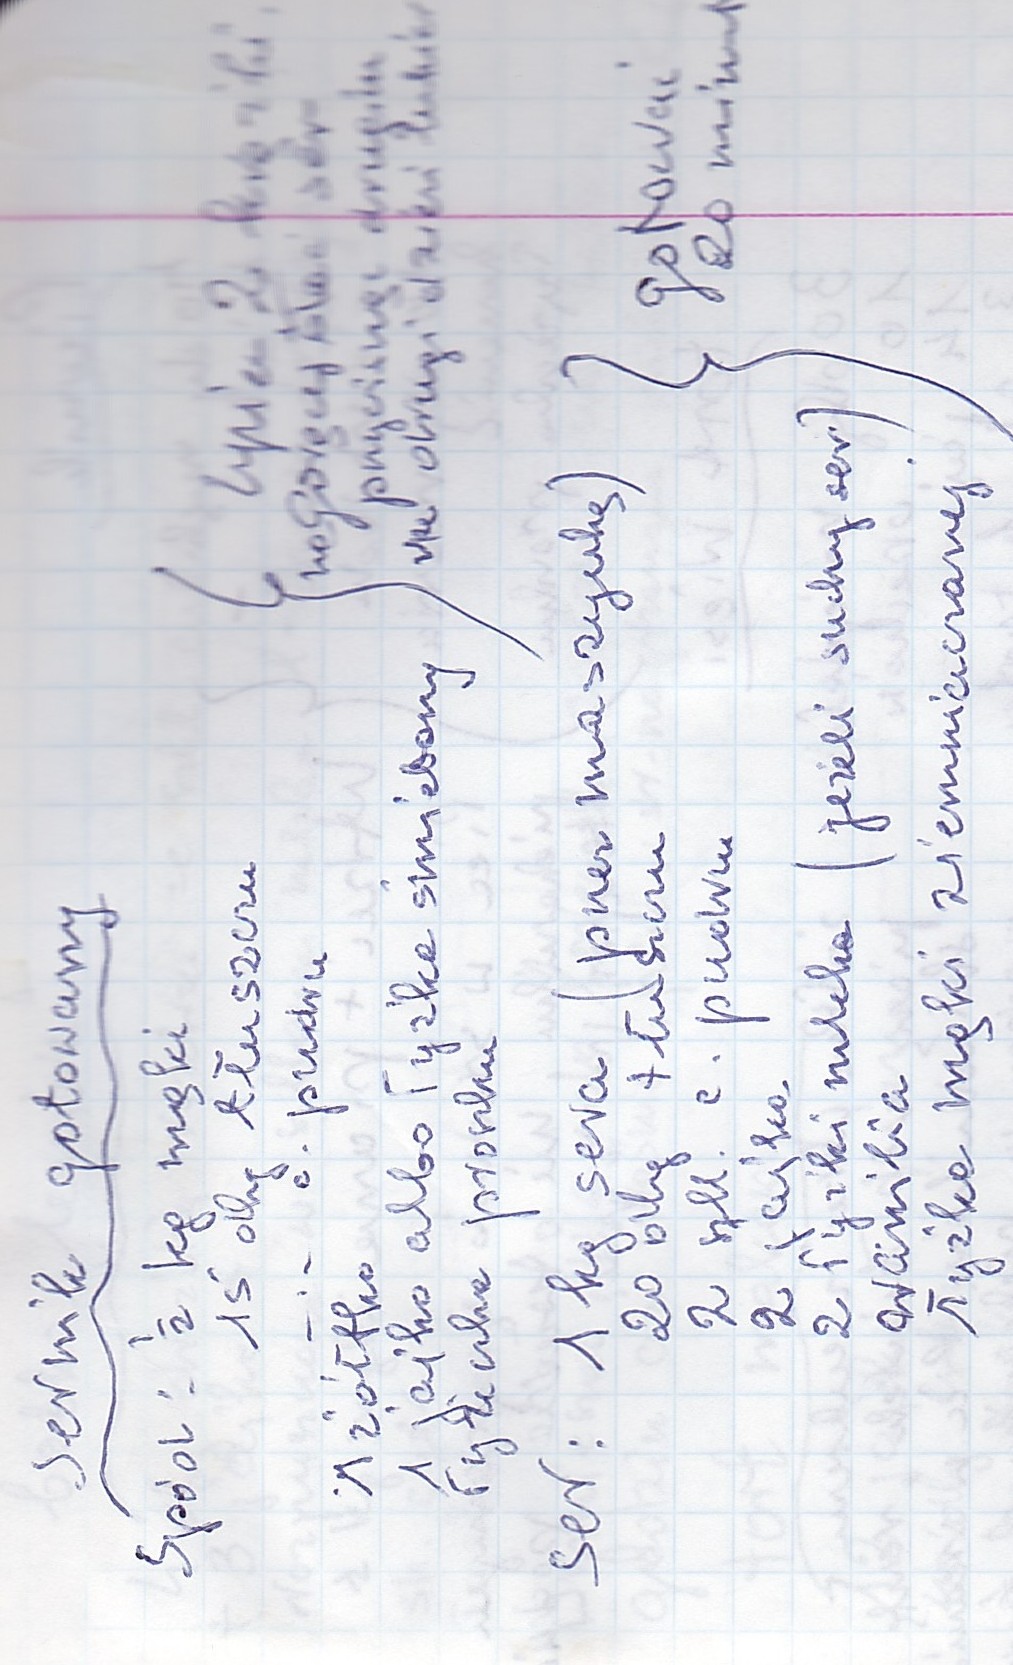 Sernik gotowany
Spód: ½ kg mąki
15 dkg tłuszczu
—"— c. pudru
1 żółtko
1 jajko albo łyżka śmietany
łyżeczka proszku
Upiec 2 krążki,
na gorący ser
przycisnąć drugim
na drugi dzień lukier
Ser: 1 kg sera (przez maszynkę)
20 dkg tłuszczu
2 szkl. c. pudru
2 jajka
2 łyżki mleka (jeżeli suchy ser)
wanilia
łyżka mąki ziemniaczanej
gotować
20 minut